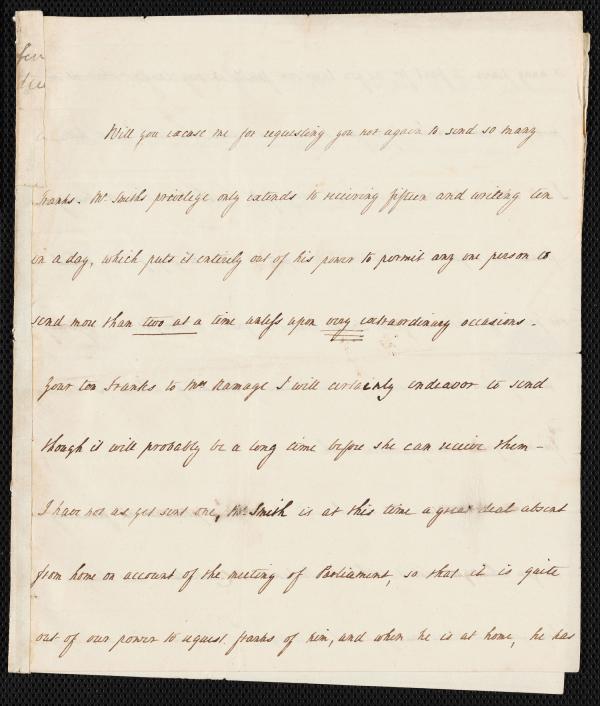 Will you excuse me for requesting you not again to send so many
Franks. Mr. Smiths privelege only extends to receiving fifteen and writing ten
in a day, which puts it entirely out of his power to permit any one person to
send more than two at a time unless upon very extraordinary occasions.
Your ten Franks to Mrs Ramage I will certainly endeavor to send
though it will probably be a long time before she can receive them –
I have not as yet sent one, Mr. Smith is at this time a great deal absent
from home on account of the meeting of Parliament, so that it is quite
out of our power to request franks of him, and when he is at home, he has